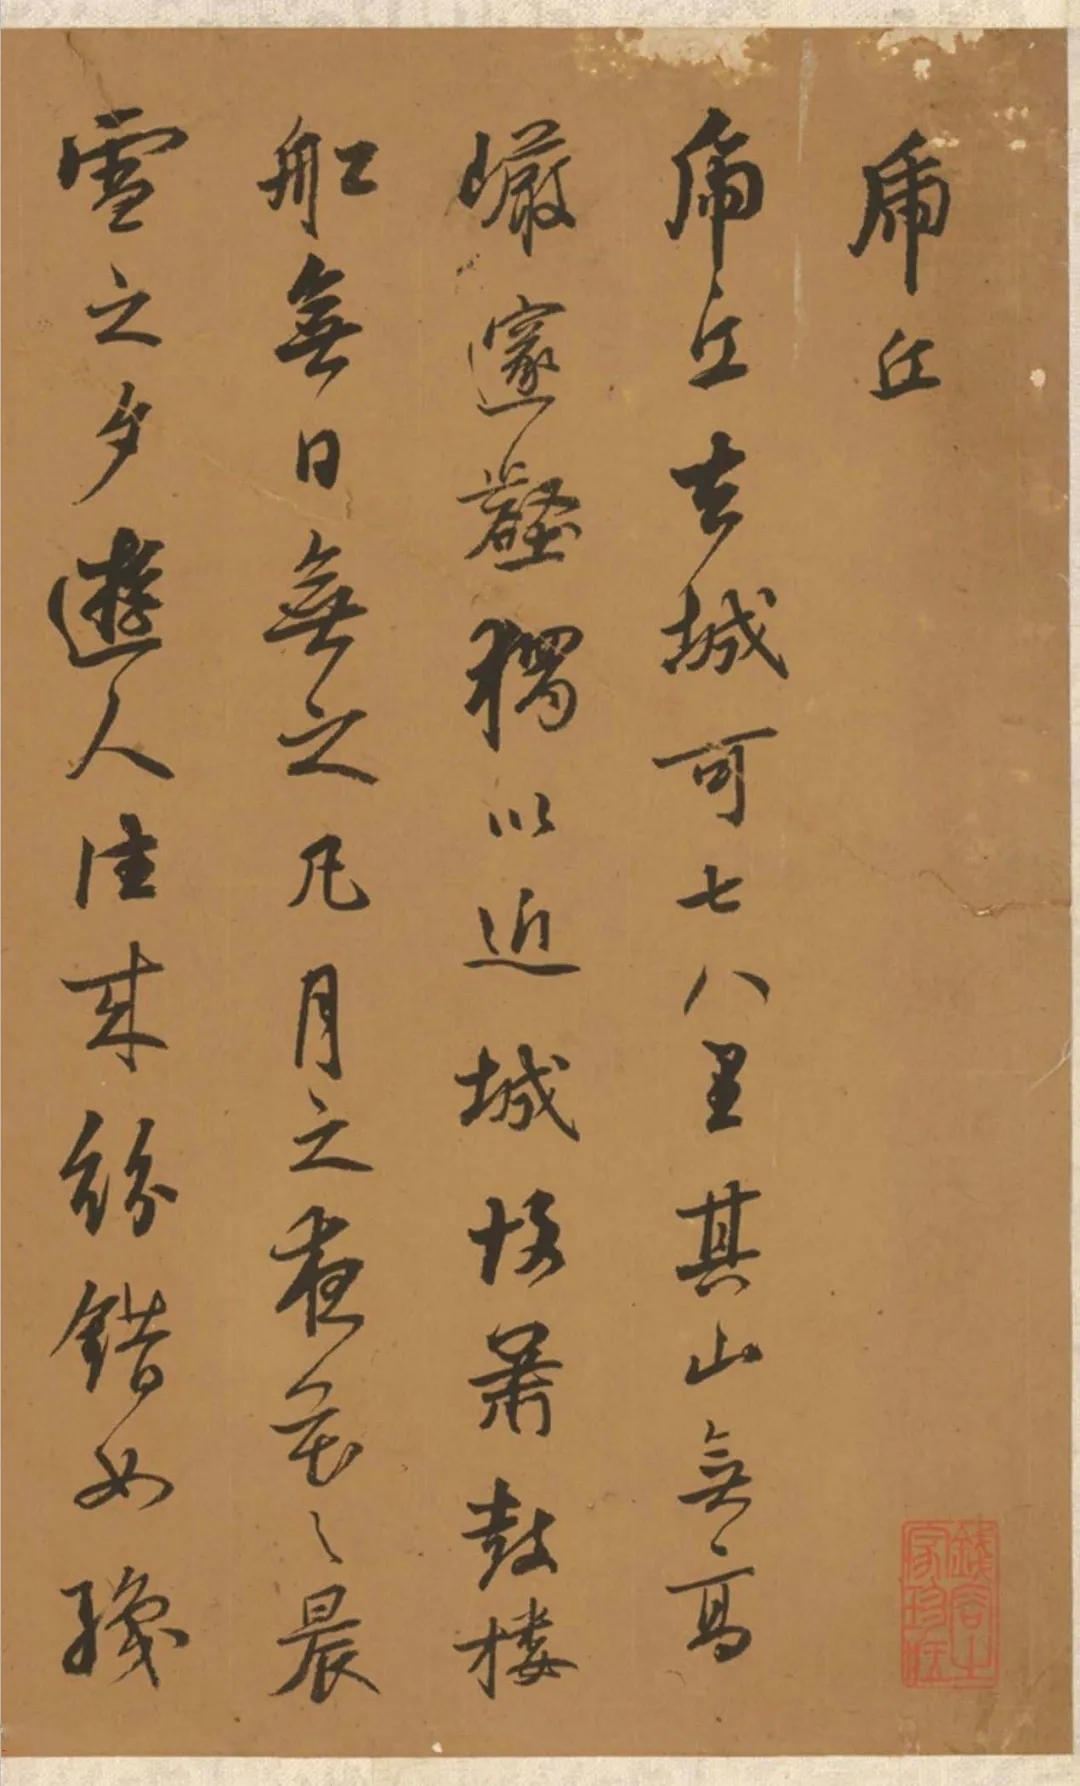 虎丘
虎丘去城可七八里其山無高
巖邃壑獨以近城故簫鼓樓
船無日無之凡月之夜花之晨
雪之夕遊人往來紛錯如織